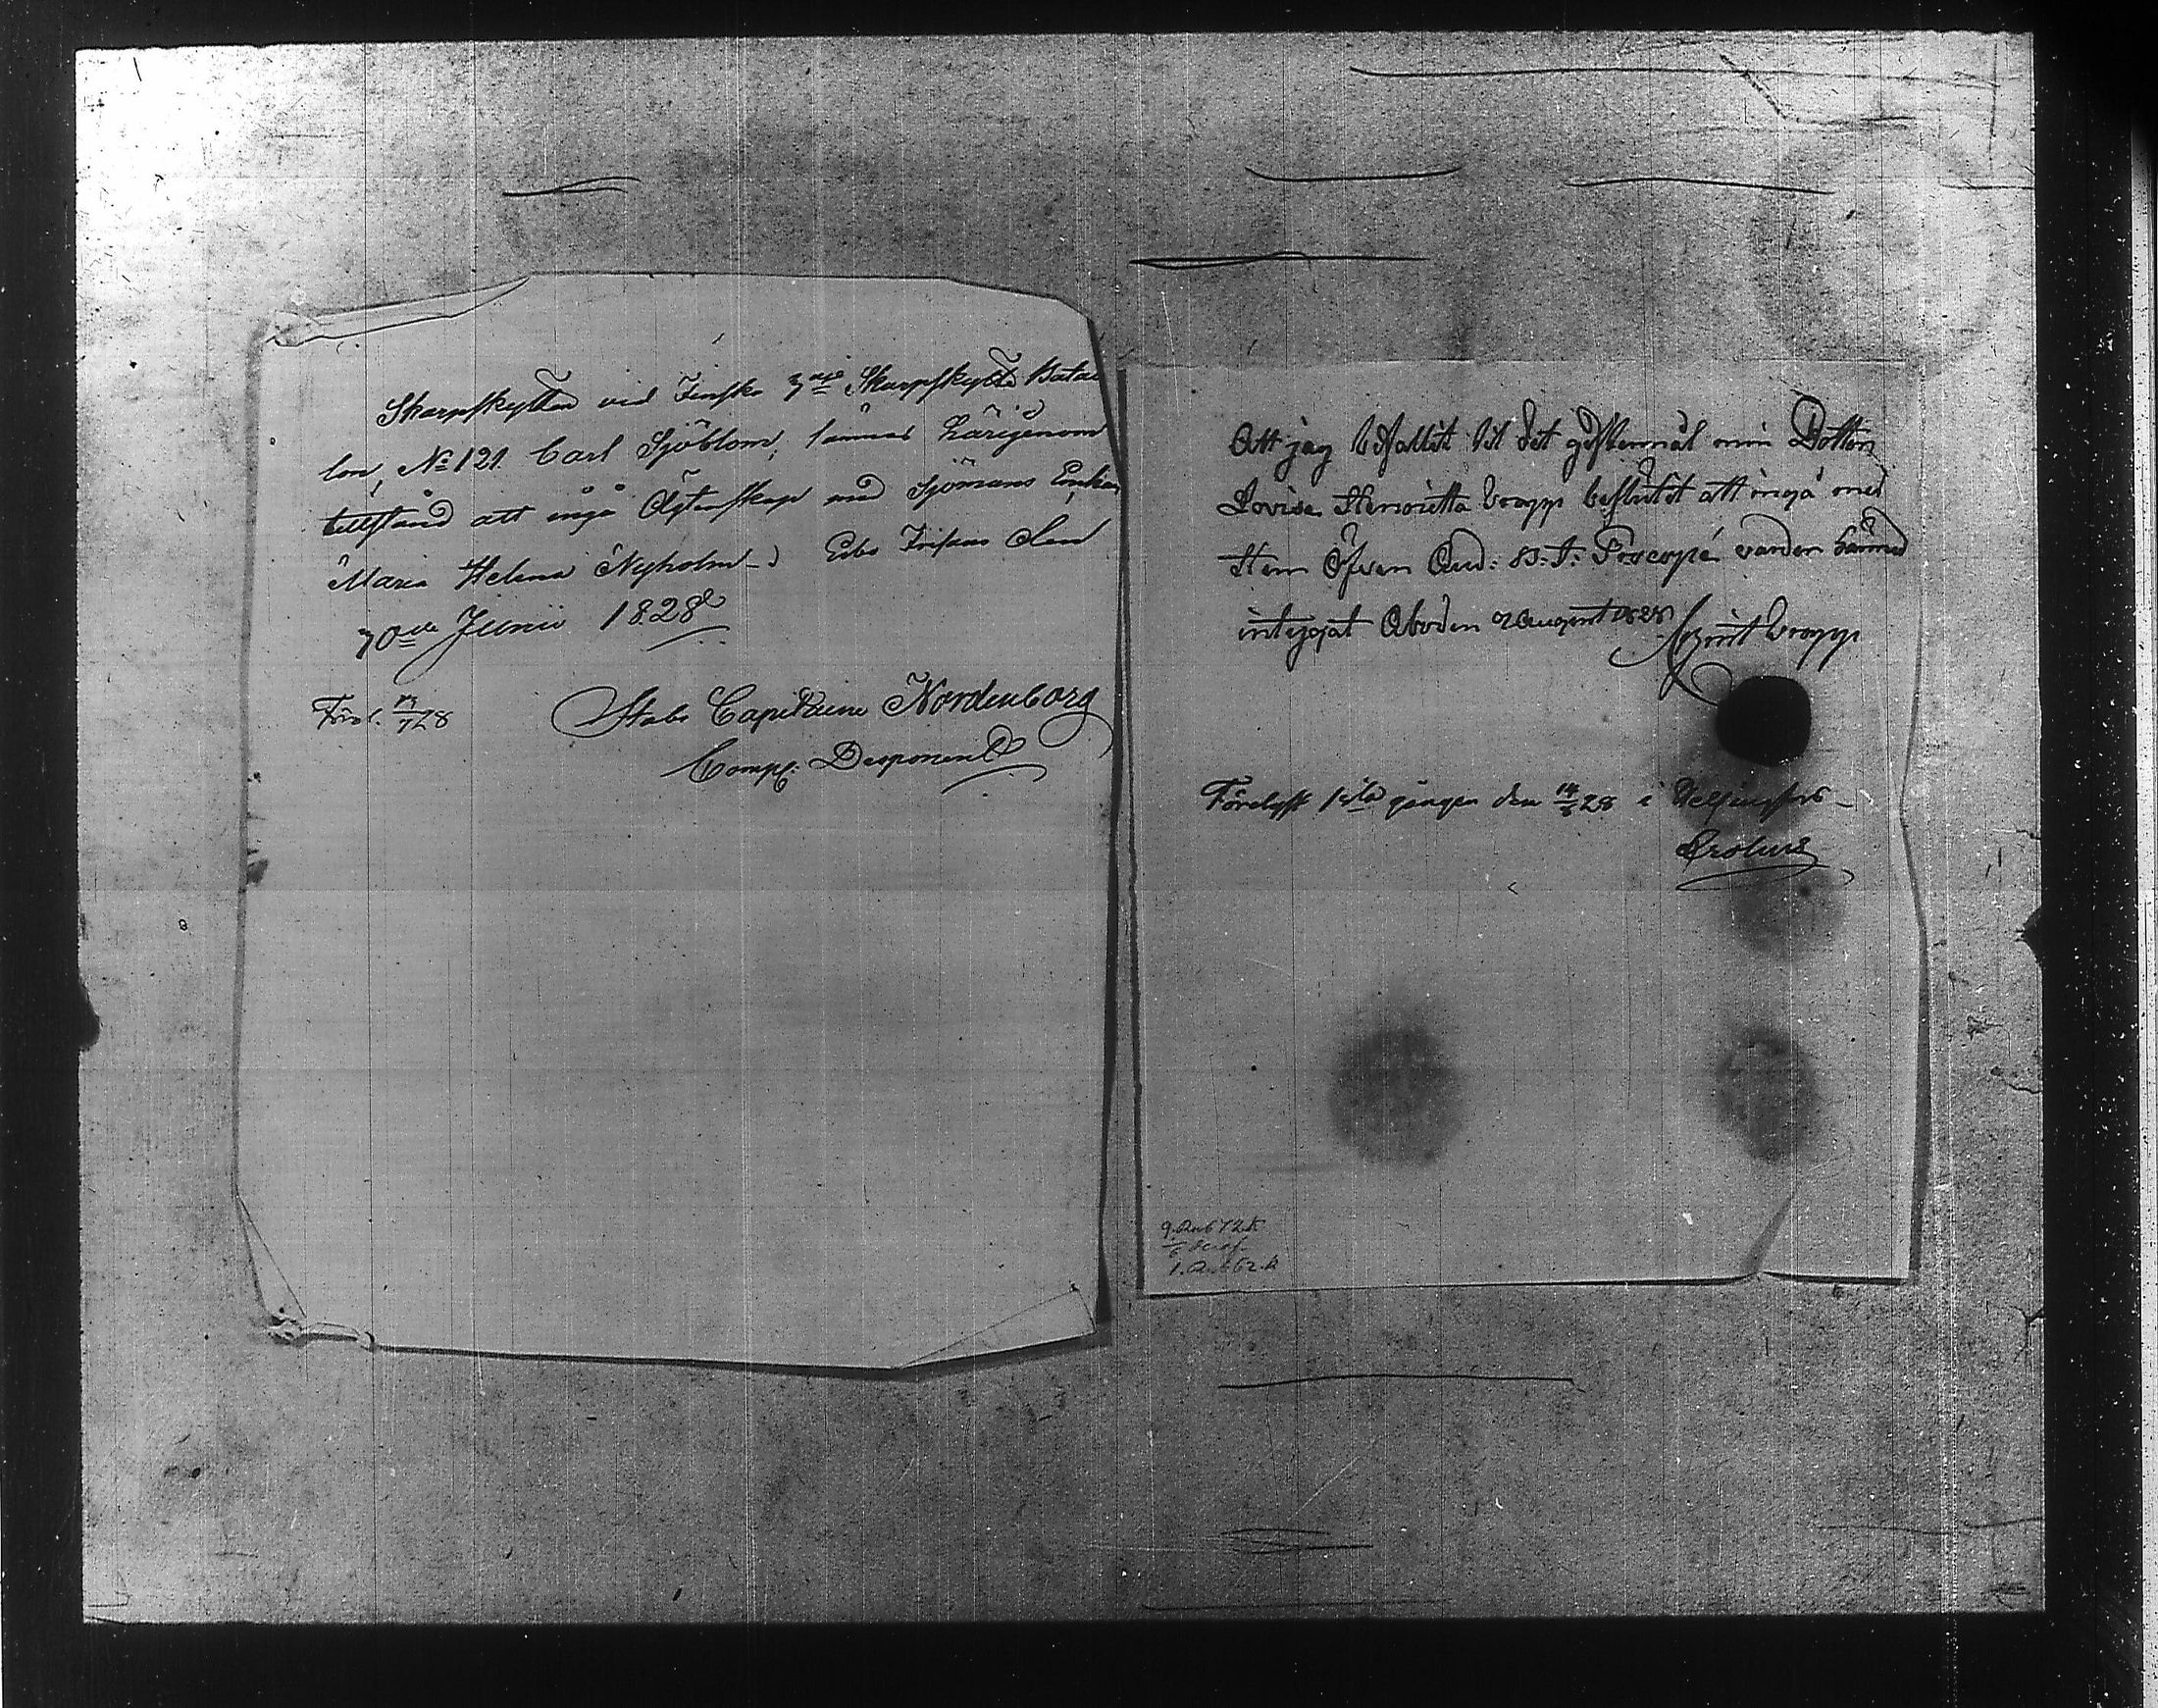 Skarpskytten vid Finska 3dje Skarpskytte Batai
lon, No 121. Carl Sjöblom, lämnas härigenom
tillstånd att ingå Ägtenskap med Sjömans Enkan
Maria Helena Nyholm
Junii 1828
Förel. 728
Stabs Capitaine Nordenborg
Comp: Disponent
Att jag bifallit til det giftermål min Dotter
Lovisa Henrietta Krapp beslutit att ingå med
Herr Öfver Aud: B: J: Procopé varder härmed
intygat Åboden August 1828 Krapp
Förelyst 1sta gången den 28 i Helsingfors
Crolius